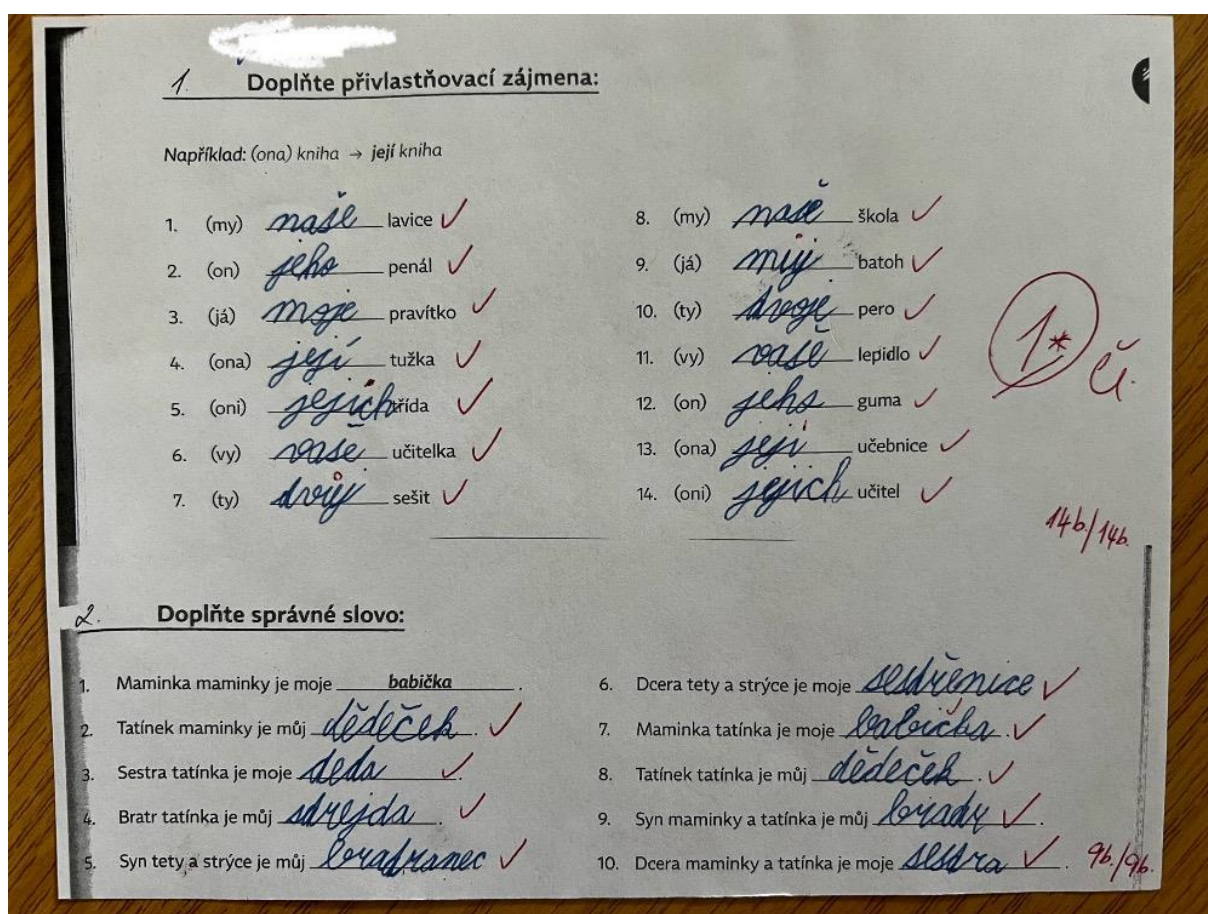 1. Doplňte přivlastňovací zájmena:
Například: (ona) kniha → její kniha
1. (my) naše lavice ✓
2. (on) jeho penál ✓
3. (já) moje pravítko ✓
4. (ona) její tužka ✓
5. (oni) jejich třída ✓
6. (vy) vaše učitelka ✓
7. (ty) tvůj sešit ✓
8. (my) naše škola ✓
9. (já) můj batoh ✓
10. (ty) tvoje pero ✓
11. (vy) vaše lepidlo ✓
12. (on) jeho guma ✓
13. (ona) její učebnice ✓
14. (oni) jejich učitel ✓
1*
Č.
14b./14b.
2. Doplňte správné slovo:
1. Maminka maminky je moje babička.
2. Tatínek maminky je můj dědeček. ✓
3. Sestra tatínka je moje teta ✓.
4. Bratr tatínka je můj strejda. ✓
5. Syn tety a strýce je můj bratranec ✓
6. Dcera tety a strýce je moje sestřenice ✓
7. Maminka tatínka je moje babička. ✓
8. Tatínek tatínka je můj dědeček. ✓
9. Syn maminky a tatínka je můj ✓.
10. Dcera maminky a tatínka je moje sestra ✓.
9b./9b.